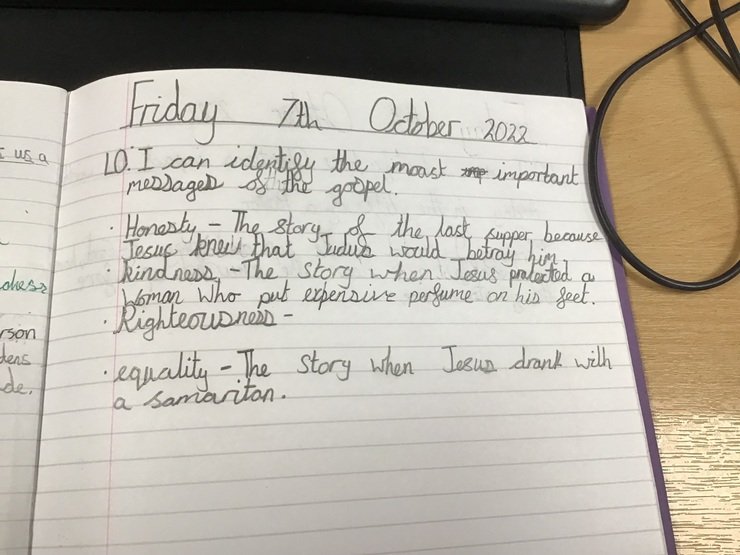 Friday 7th October 2022
LO: I can identify the moast important
messages of the gospel.
· Honesty – The story of the last supper because
Jesus knew that Judus would betray him.
· kindness – The story when Jesus protected a
woman who put expensive perfume on his feet.
· Righteousness –
· equality – The story when Jesus drank with
a samaritan.
us a
rson
dens
de.